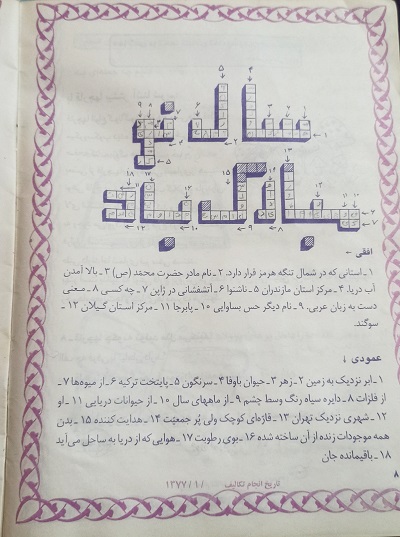 افقی ←
۱ ـ استانی که در شمال تنگه هرمز قرار دارد. ۲ ـ نام مادر حضرت محمد (ص) ۳ ـ بالا آمدن
آب دریا. ۴ ـ مرکز استان مازندران ۵ ـ ناشنوا ۶ ـ آتشفشانی در ژاپن ۷ ـ چه کسی ۸ ـ معنی
دست به زبان عربی. ۹ ـ نام دیگر حس بساوایی ۱۰ ـ پابرجا ۱۱ ـ مرکز استان گیلان ۱۲ ـ
سوگند.
عمودی ↓
۱ ـ ابر نزدیک به زمین ۲ ـ زهر ۳ ـ حیوان باوفا ۴ ـ سرنگون ۵ ـ پایتخت ترکیه ۶ ـ از میوه‌ها ۷ ـ
از فلزات ۸ ـ دایره سیاه رنگ وسط چشم ۹ ـ از ماههای سال ۱۰ ـ از حیوانات دریایی ۱۱ ـ او
۱۲ ـ شهری نزدیک تهران ۱۳ ـ قاره‌ای کوچک ولی پُر جمعیّت ۱۴ ـ هدایت کننده ۱۵ ـ بدن
همه موجودات زنده از آن ساخته شده ۱۶ ـ بوی رطوبت ۱۷ ـ هوایی که از دریا به ساحل می‌آید
۱۸ ـ باقیمانده جان
۸
تاریخ انجام تکالیف / ۱ / ۱۳۷۷